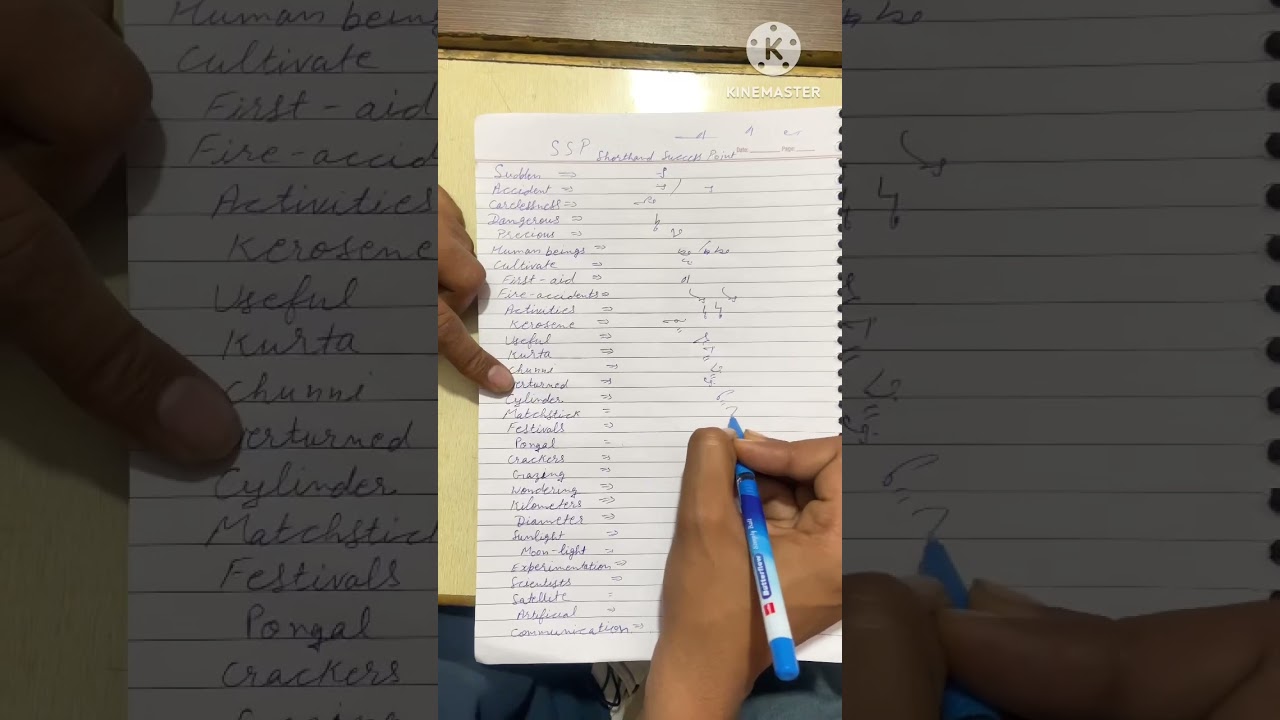 KINEMASTER
SSP Shorthand Success Point
Date Page
Sudden ⇒
Accident ⇒
Carelessness ⇒
Dangerous ⇒
Precious ⇒
Human beings ⇒
Cultivate ⇒
First-aid ⇒
Fire-accidents ⇒
Activities ⇒
Kerosene ⇒
Useful ⇒
Kurta ⇒
Chunni ⇒
erturned ⇒
Cylinder ⇒
Matchstick =
Festivals ⇒
Pongal =
Crackers ⇒
Gazing ⇒
Wondering ⇒
Kilometers ⇒
Diameter ⇒
Sunlight ⇒
Moon-light ⇒
Experimentation ⇒
Scientists ⇒
Satellite =
Artificial ⇒
Communication ⇒
Butterflow